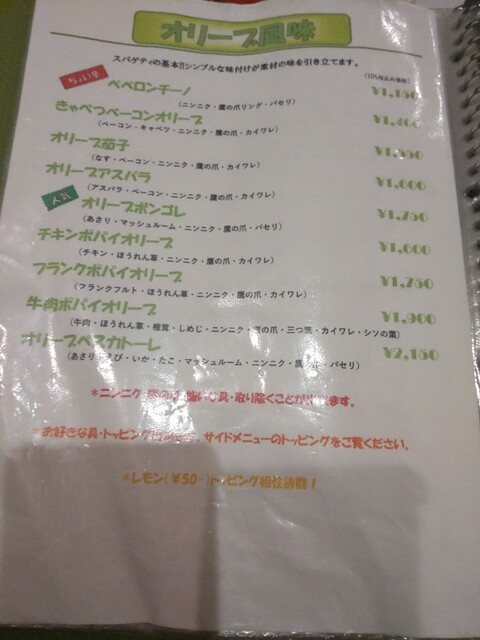 オリーブ風味
スパゲティの基本!!シンプルな味付けが素材の味を引き立てます。
(10%税込み価格)
ちょい辛
ペペロンチーノ ¥1,150
(ニンニク・鷹の爪リング・パセリ)
きゃべつベーコンオリーブ ¥1,400
(ベーコン・キャベツ・ニンニク・鷹の爪・カイワレ)
オリーブ茄子
(なす・ベーコン・ニンニク・鷹の爪・カイワレ)
オリーブアスパラ ¥1,600
(アスパラ・ベーコン・ニンニク・鷹の爪・カイワレ)
人気
オリーブボンゴレ ¥1,750
(あさり・マッシュルーム・ニンニク・鷹の爪・パセリ)
チキンポパイオリーブ ¥1,600
(チキン・ほうれん草・ニンニク・鷹の爪・カイワレ)
フランクポパイオリーブ ¥1,750
(フランクフルト・ほうれん草・ニンニク・鷹の爪・カイワレ)
牛肉ポパイオリーブ ¥1,900
(牛肉・ほうれん草・椎茸・しめじ・ニンニク・鷹の爪・三つ葉・カイワレ・シソの葉)
オリーブペスカトーレ ¥2,150
(あさり・えび・いか・たこ・マッシュルーム・ニンニク・鷹の爪・パセリ)
*ニンニク 嫌いな具・取り除くことが出来ます。
*お好きな具・トッピング サイドメニューのトッピングをご覧ください。
*レモン(¥50-)トッピング相性抜群！